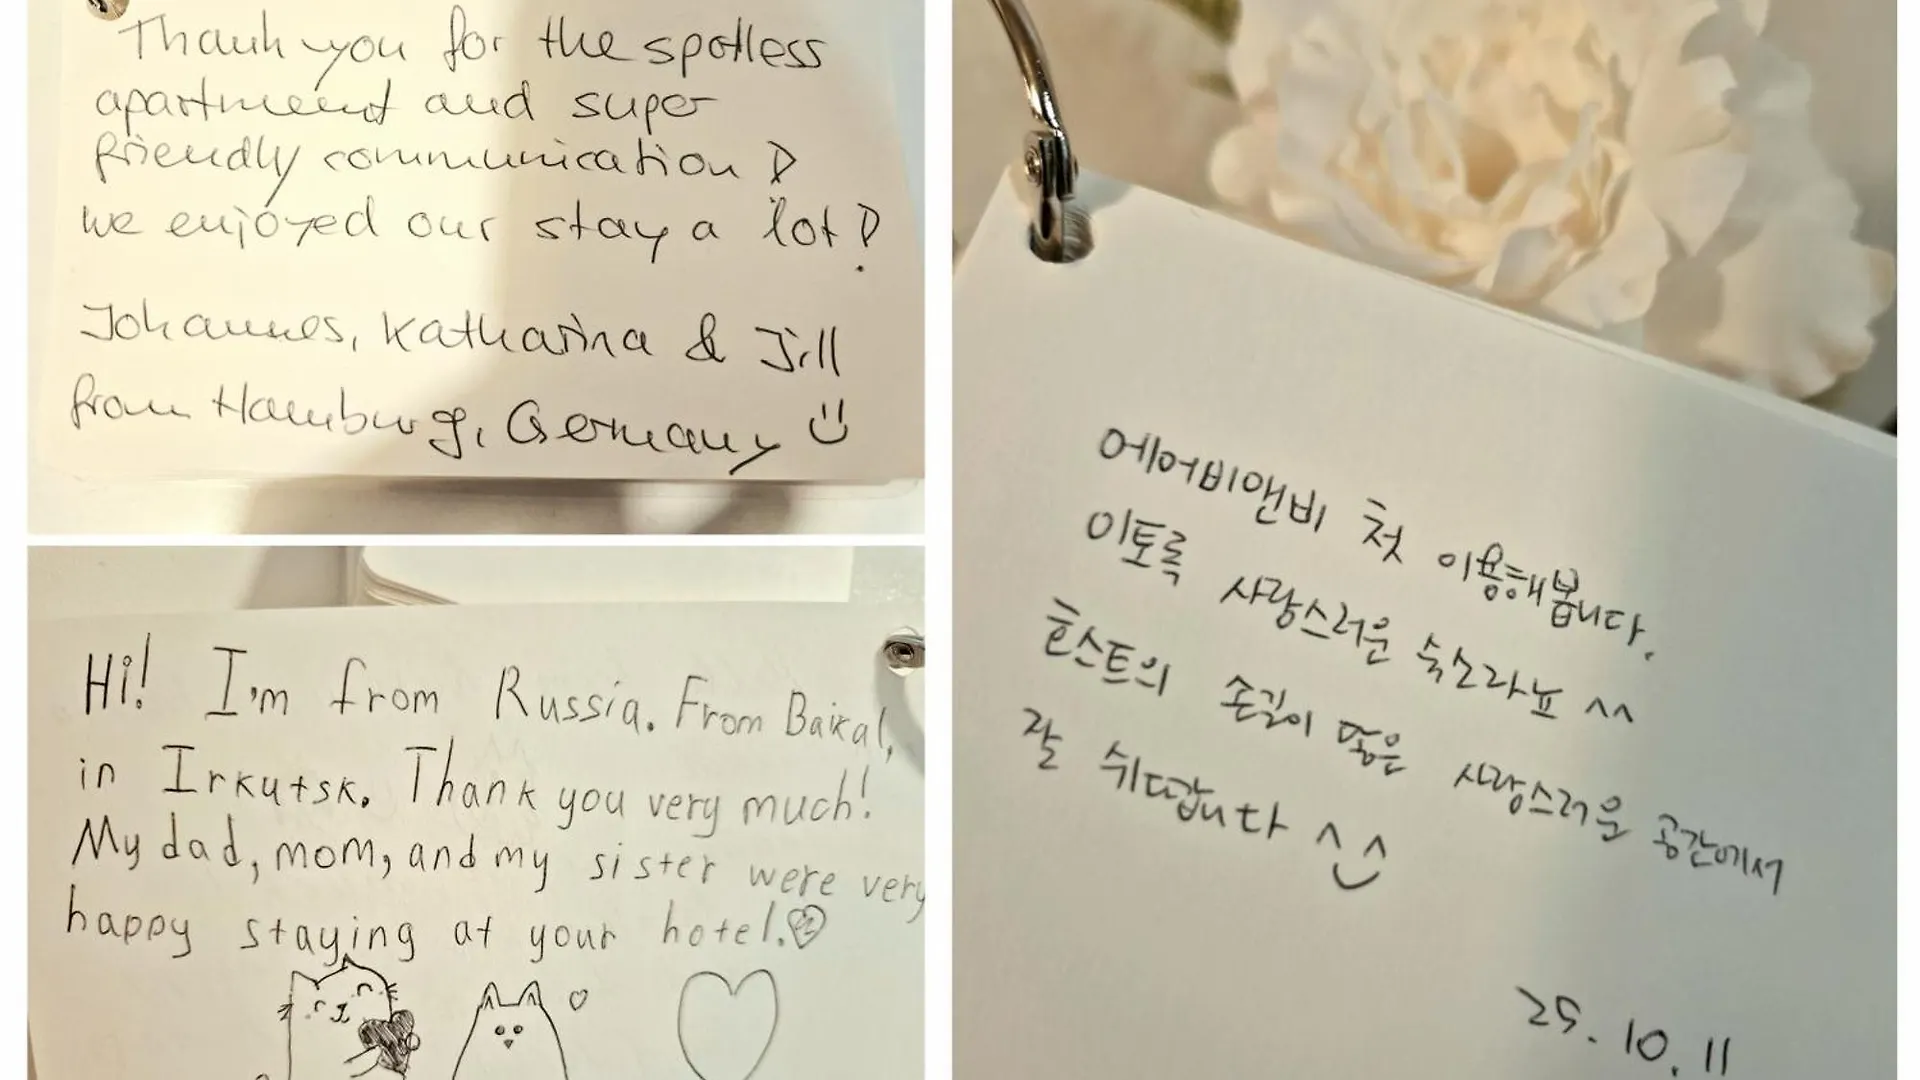 Thank you for the spotless
apartment and super
friendly communication!
We enjoyed our stay a lot!
Johannes, Katharina & Jill
from Hamburg, Germany
Hi! I'm from Russia. From Baikal,
in Irkutsk. Thank you very much!
My dad, mom, and my sister were very
happy staying at your hotel.
에어비앤비 첫 이용해봅니다.
이토록 사랑스러운 숙소라뇨 ^^
호스트의 손길이 많은 사랑스러운 공간에서
잘 쉬다갑니다 ^^
25. 10. 11